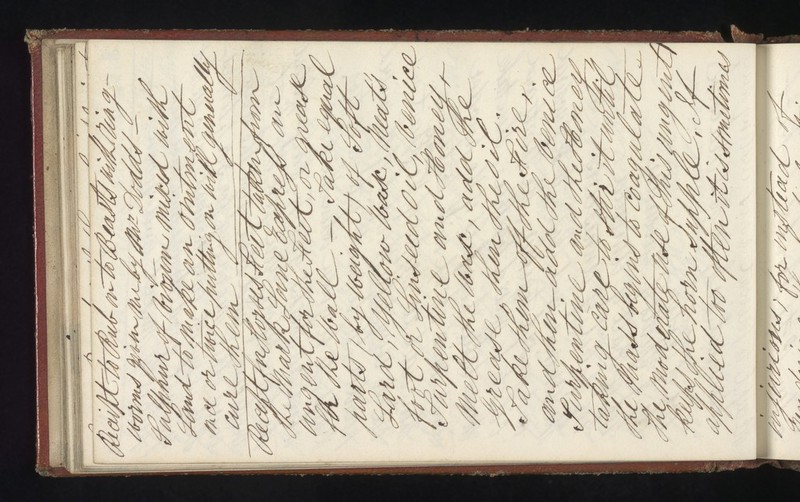 Receipt to Rub on to Beasts with Ring-
worms given me by Mr Dodds -
Sulphur & Viguon mixed with
Land to make an Ointment
once or twice putting on will generally
cure them
Receipt for Horses Feet taken from
the Mark Lane Express an
ungent for the feet, or grease
for the ball - Take equal
parts, by weight, of Soft
Lard, Yellow bax, Neats
foot or Linseed oil, Venice
Turpentine and Honey +
Melt the bax, add the
grease, then the oil.
Take them of the Fire,
and then add the Venice
Turpentine and the Honey
taking care to stir it until
the Mass begins to coagulate -
The moderate use of this ungent
keeps the horn supple, If
applied too often it is sometimes
injurious, for instead of